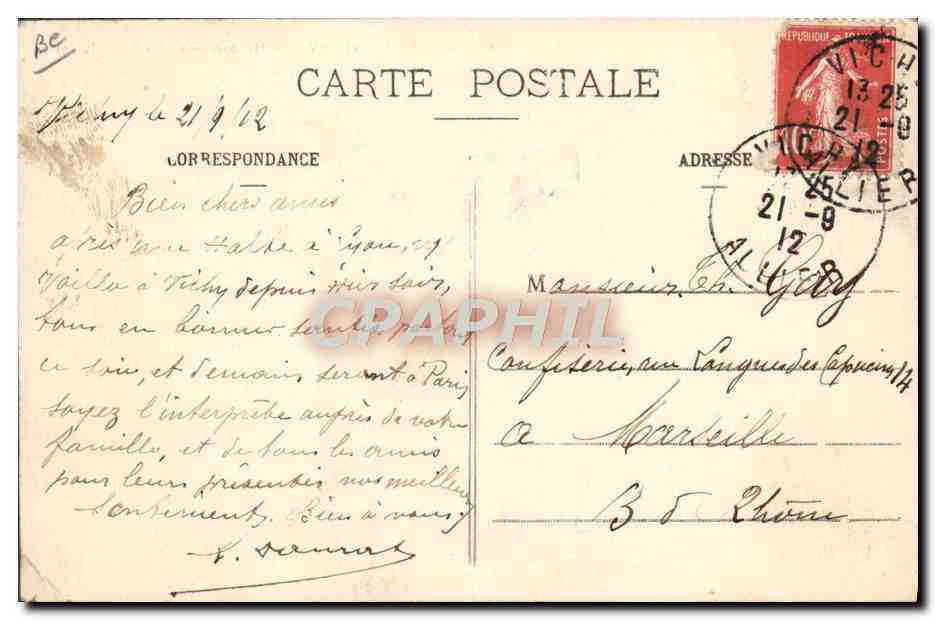 Be
CARTE POSTALE
Vichy le 21/9/12
CORRESPONDANCE
ADRESSE
REPUBLIQUE
POSTES
VICHY
13 25
21 -9
12
ALLIER
VICHY
25
21 -9
12
ALLIER
Bien chers amis
après une Halte à Lyon,
Veille à Vichy depuis soir,
tous en bonne santé
ce soir, et demain seront à Paris
soyez l'interprète auprès de votre
famille, et de tous les amis
pour leurs présenter nos meilleurs
sentiments. Bien à vous
Monsieur Th. Gay
Confiserie, rue Longue des Capucins, 14
a Marseille
B d Rhône
CPAPHIL